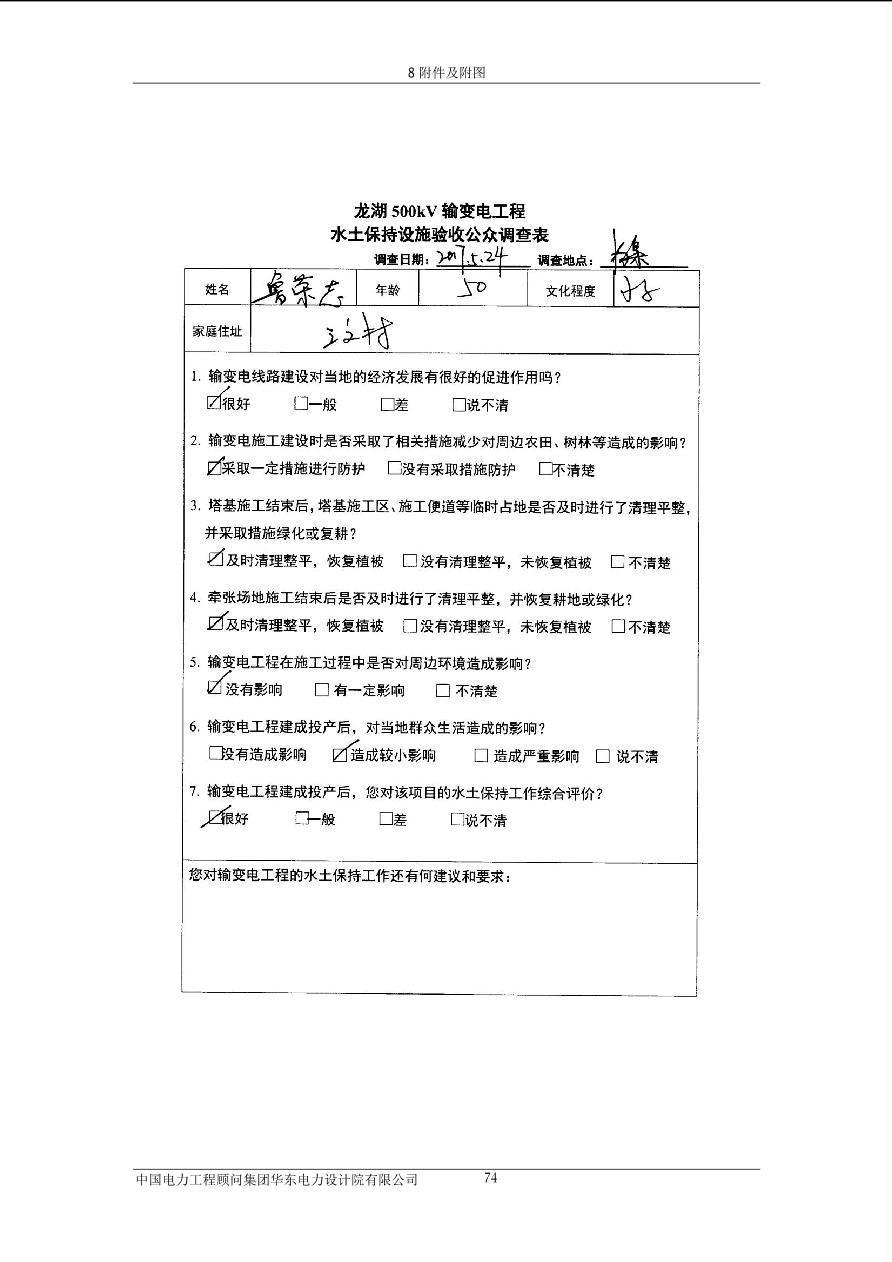 8 附件及附图
龙湖 500kV 输变电工程
水土保持设施验收公众调查表
调查日期：2017.5.24 调查地点：
姓名 鲁荣志 年龄 50 文化程度
家庭住址 村
1. 输变电线路建设对当地的经济发展有很好的促进作用吗？
☑很好 □一般 □差 □说不清
2. 输变电施工建设时是否采取了相关措施减少对周边农田、树林等造成的影响？
☑采取一定措施进行防护 □没有采取措施防护 □不清楚
3. 塔基施工结束后，塔基施工区、施工便道等临时占地是否及时进行了清理平整，
并采取措施绿化或复耕？
☑及时清理整平，恢复植被 □没有清理整平，未恢复植被 □不清楚
4. 牵张场地施工结束后是否及时进行了清理平整，并恢复耕地或绿化？
☑及时清理整平，恢复植被 □没有清理整平，未恢复植被 □不清楚
5. 输变电工程在施工过程中是否对周边环境造成影响？
☑没有影响 □有一定影响 □不清楚
6. 输变电工程建成投产后，对当地群众生活造成的影响？
□没有造成影响 ☑造成较小影响 □造成严重影响 □说不清
7. 输变电工程建成投产后，您对该项目的水土保持工作综合评价？
☑很好 □一般 □差 □说不清
您对输变电工程的水土保持工作还有何建议和要求：
中国电力工程顾问集团华东电力设计院有限公司 74